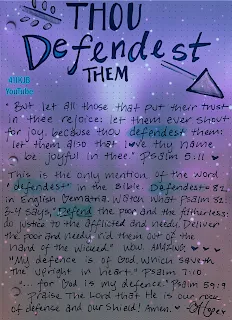 THOU
Defendest
THEM
YouTube
"But let all those that put their trust
in thee rejoice: let them ever shout
for joy, because thou defendest them:
let them also that love thy name
be joyful in thee." Psalm 5:11
This is the only mention of the word
"defendest" in the Bible. Defendest = 82
in English Gematria. Watch what Psalm 82:
3-4 says, "Defend the poor and the fatherless:
do justice to the afflicted and needy. Deliver
the poor and needy: rid them out of the
hand of the wicked." Wow. AMAZING
"My defense is of God, which saveth
the upright in heart." Psalm 7:10
"... for God is my defence." Psalm 59:9
Praise the Lord that He is our rock
of defence and our shield! Amen.